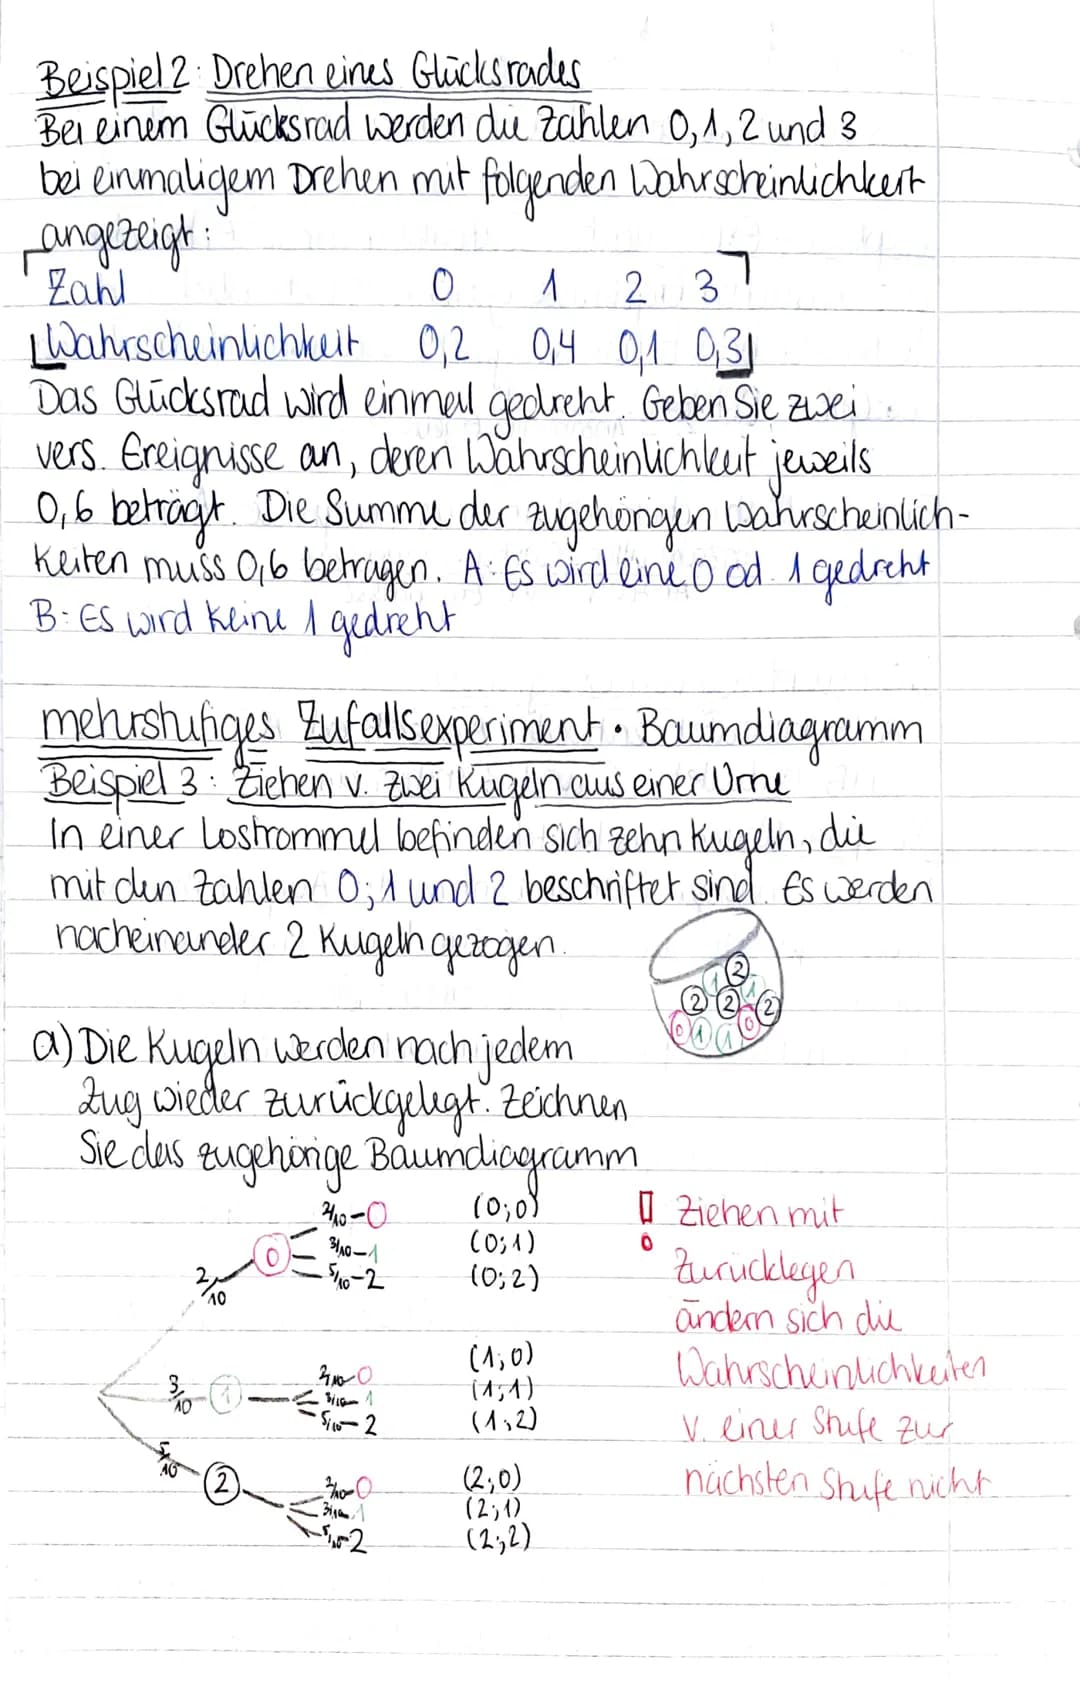 Beispiel 2: Drehen eines Glücksrades
Bei einem Glücksrad werden die Zahlen 0,1,2 und 3
bei einmaligem Drehen mit folgenden Wahrscheinlichkeit
angezeigt:
Zahl 0 1 2 3
Wahrscheinlichkeit 0,2 0,4 0,1 0,3
Das Glücksrad wird einmal gedreht. Geben Sie zwei
vers. Ereignisse an, deren Wahrscheinlichkeit jeweils
0,6 beträgt. Die Summe der zugehörigen Wahrscheinlich-
keiten muss 0,6 betragen. A: Es wird eine 0 od. 1 gedreht
B: Es wird keine 1 gedreht
mehrstufiges Zufallsexperiment · Baumdiagramm
Beispiel 3: Ziehen v. zwei Kugeln aus einer Urne
In einer Lostrommel befinden sich zehn Kugeln, die
mit den Zahlen 0; 1 und 2 beschriftet sind. Es werden
nacheinander 2 Kugeln gezogen.
2
1 1
2 2 2
0 1 1 0
a) Die Kugeln werden nach jedem
Zug wieder zurückgelegt. Zeichnen
Sie das zugehörige Baumdiagramm
2/10 0 2/10 - 0 (0;0)
3/10 - 1 (0;1)
5/10 - 2 (0;2)
3/10 1 2/10 - 0 (1;0)
3/10 - 1 (1;1)
5/10 - 2 (1;2)
5/10 2 2/10 - 0 (2;0)
3/10 - 1 (2;1)
5/10 - 2 (2;2)
! Ziehen mit
Zurücklegen
ändern sich die
Wahrscheinlichkeiten
v. einer Stufe zur
nächsten Stufe nicht